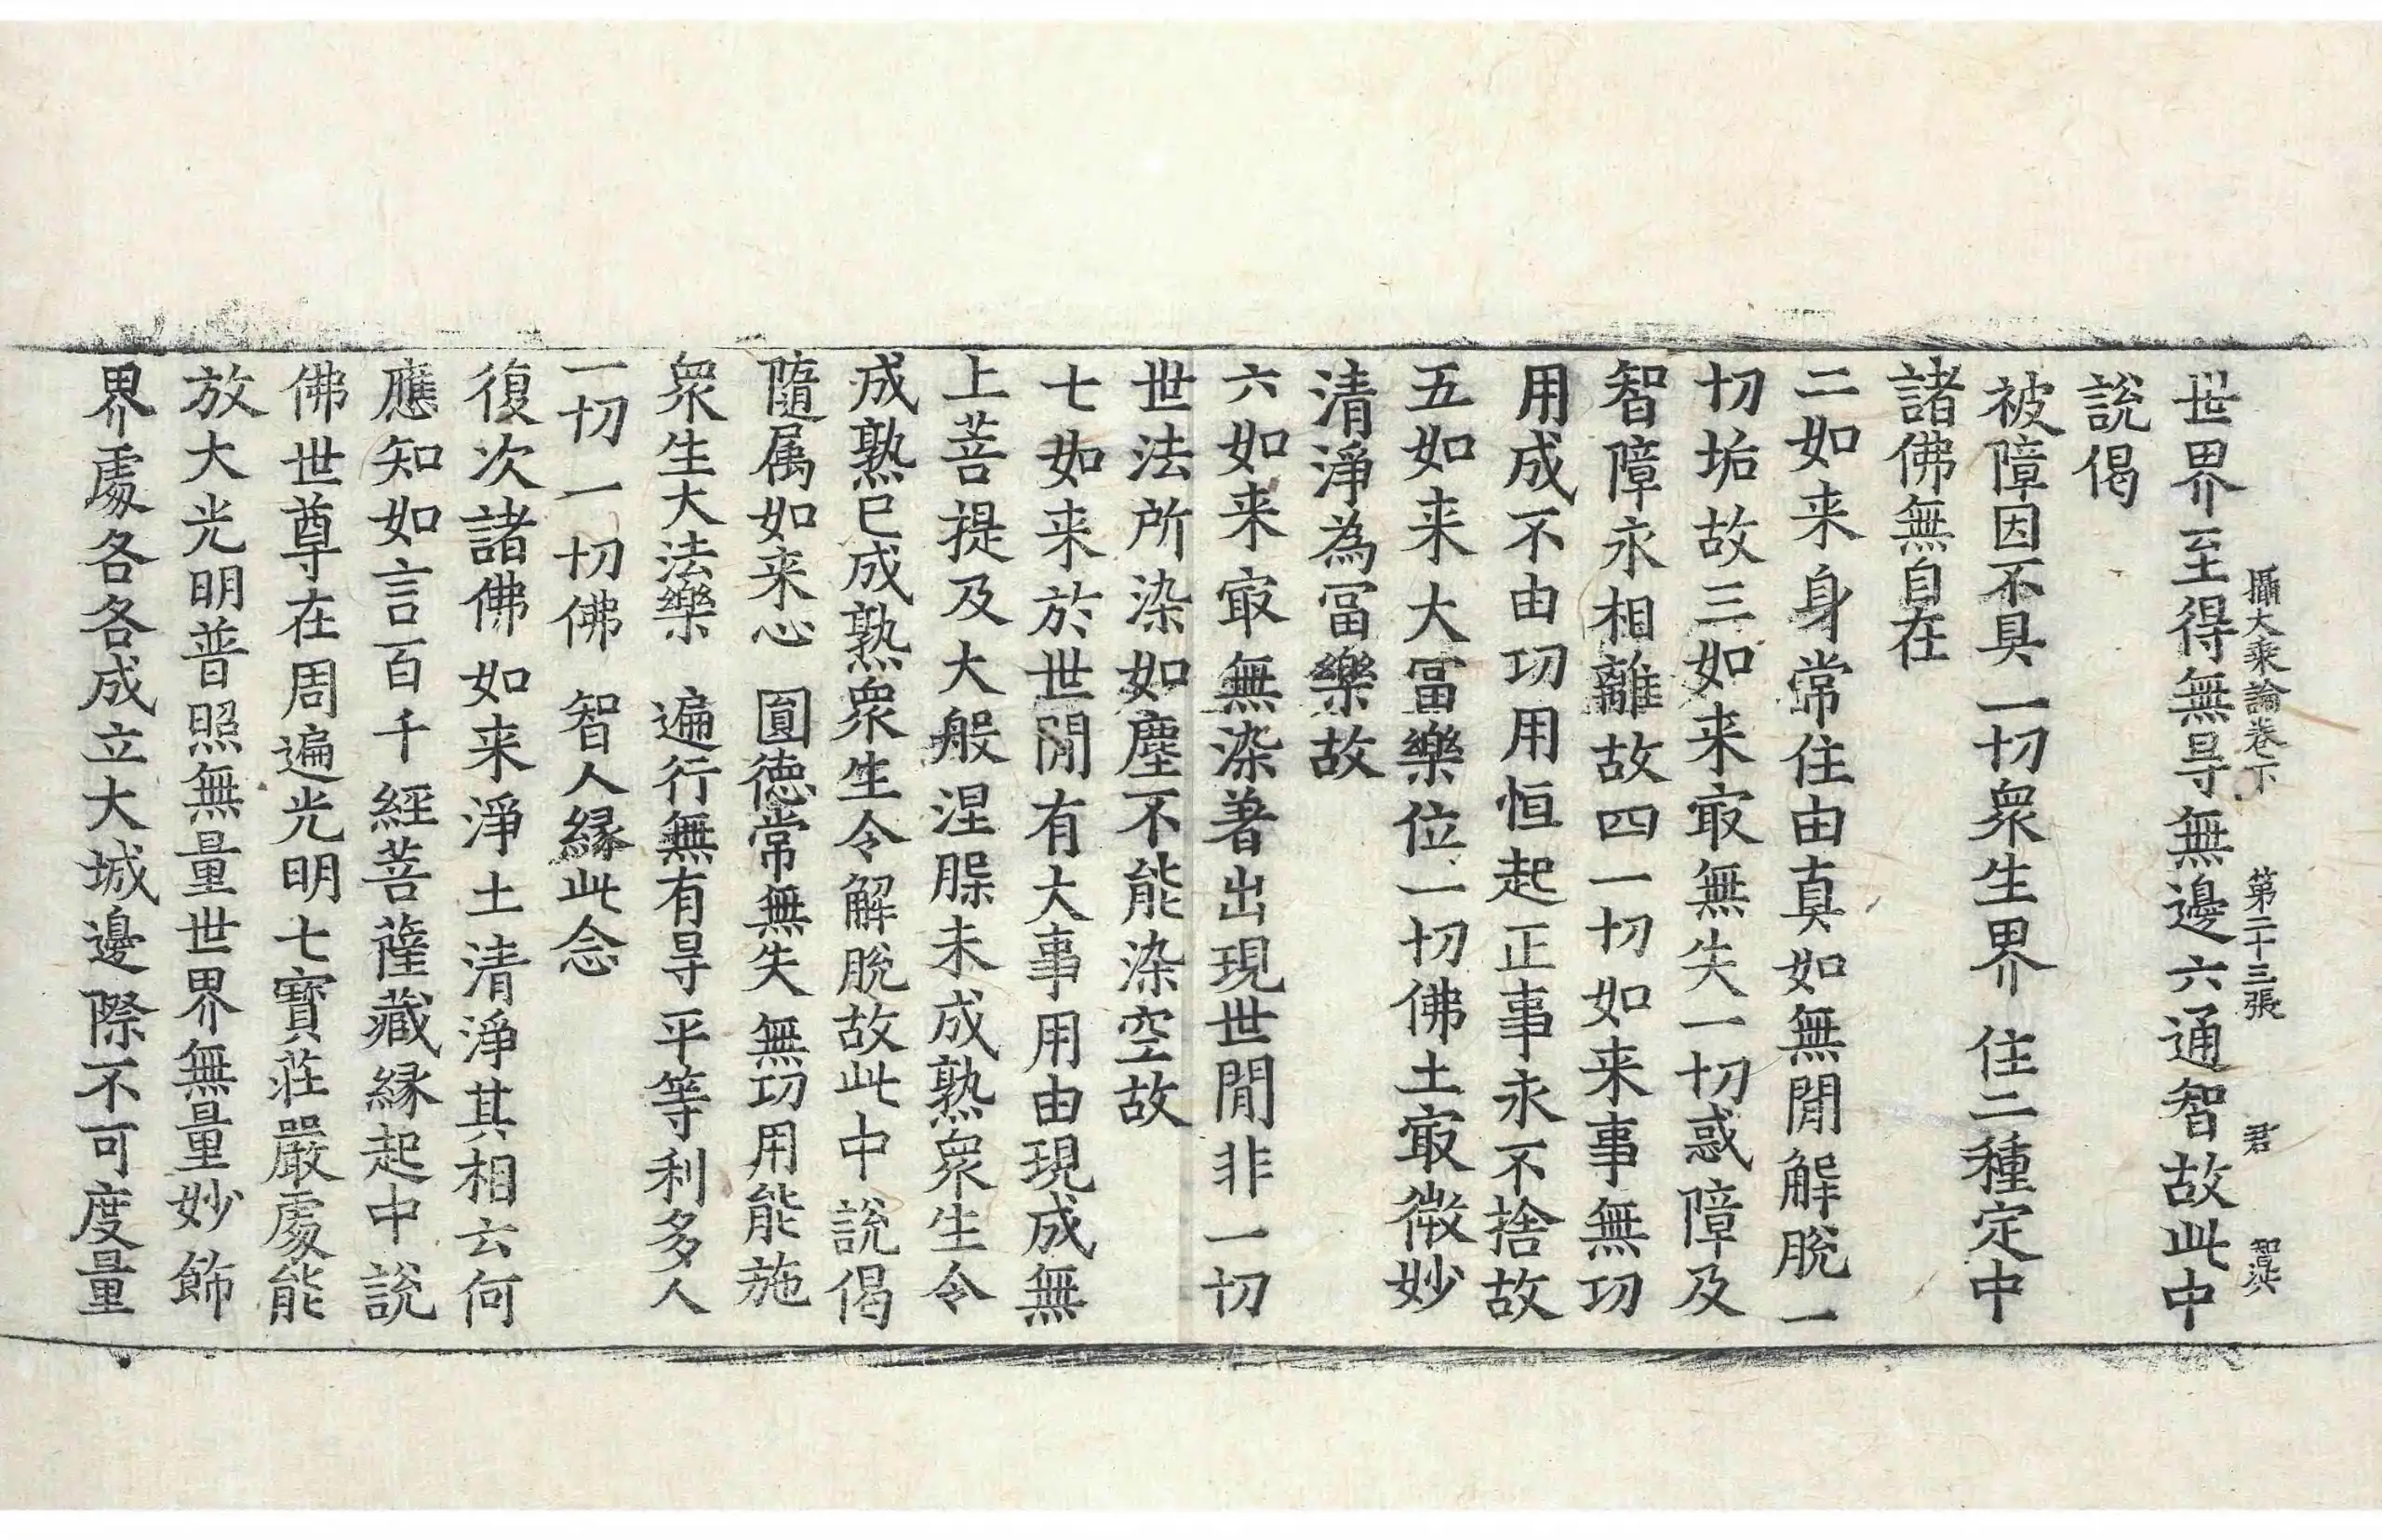 攝大乘論卷下 第二十三張 君 智洪
世界至得無㝵無邊六通智故此中
說偈
被障因不具一切衆生界 住二種定中
諸佛無自在
二如来身常住由真如無閒解脫一
切垢故三如来㝡無失一切惑障及
智障永相離故四一切如来事無功
用成不由功用恒起正事永不捨故
五如来大冨樂位一切佛土㝡微妙
清淨為冨樂故
六如来㝡無染著出現世閒非一切
世法所染如塵不能染空故
七如来於世閒有大事用由現成無
上菩提及大般涅槃未成熟衆生令
成熟已成熟衆生令解脫故此中說偈
隨属如来心 圓德常無失 無功用能施
衆生大法樂 遍行無有㝵 平等利多人
一切一切佛 智人縁此念
復次諸佛如来淨土清淨其相云何
應知如言百千經菩薩藏縁起中說
佛世尊在周遍光明七寶莊嚴處能
放大光明普照無量世界無量妙飾
界處各各成立大城邊際不可度量